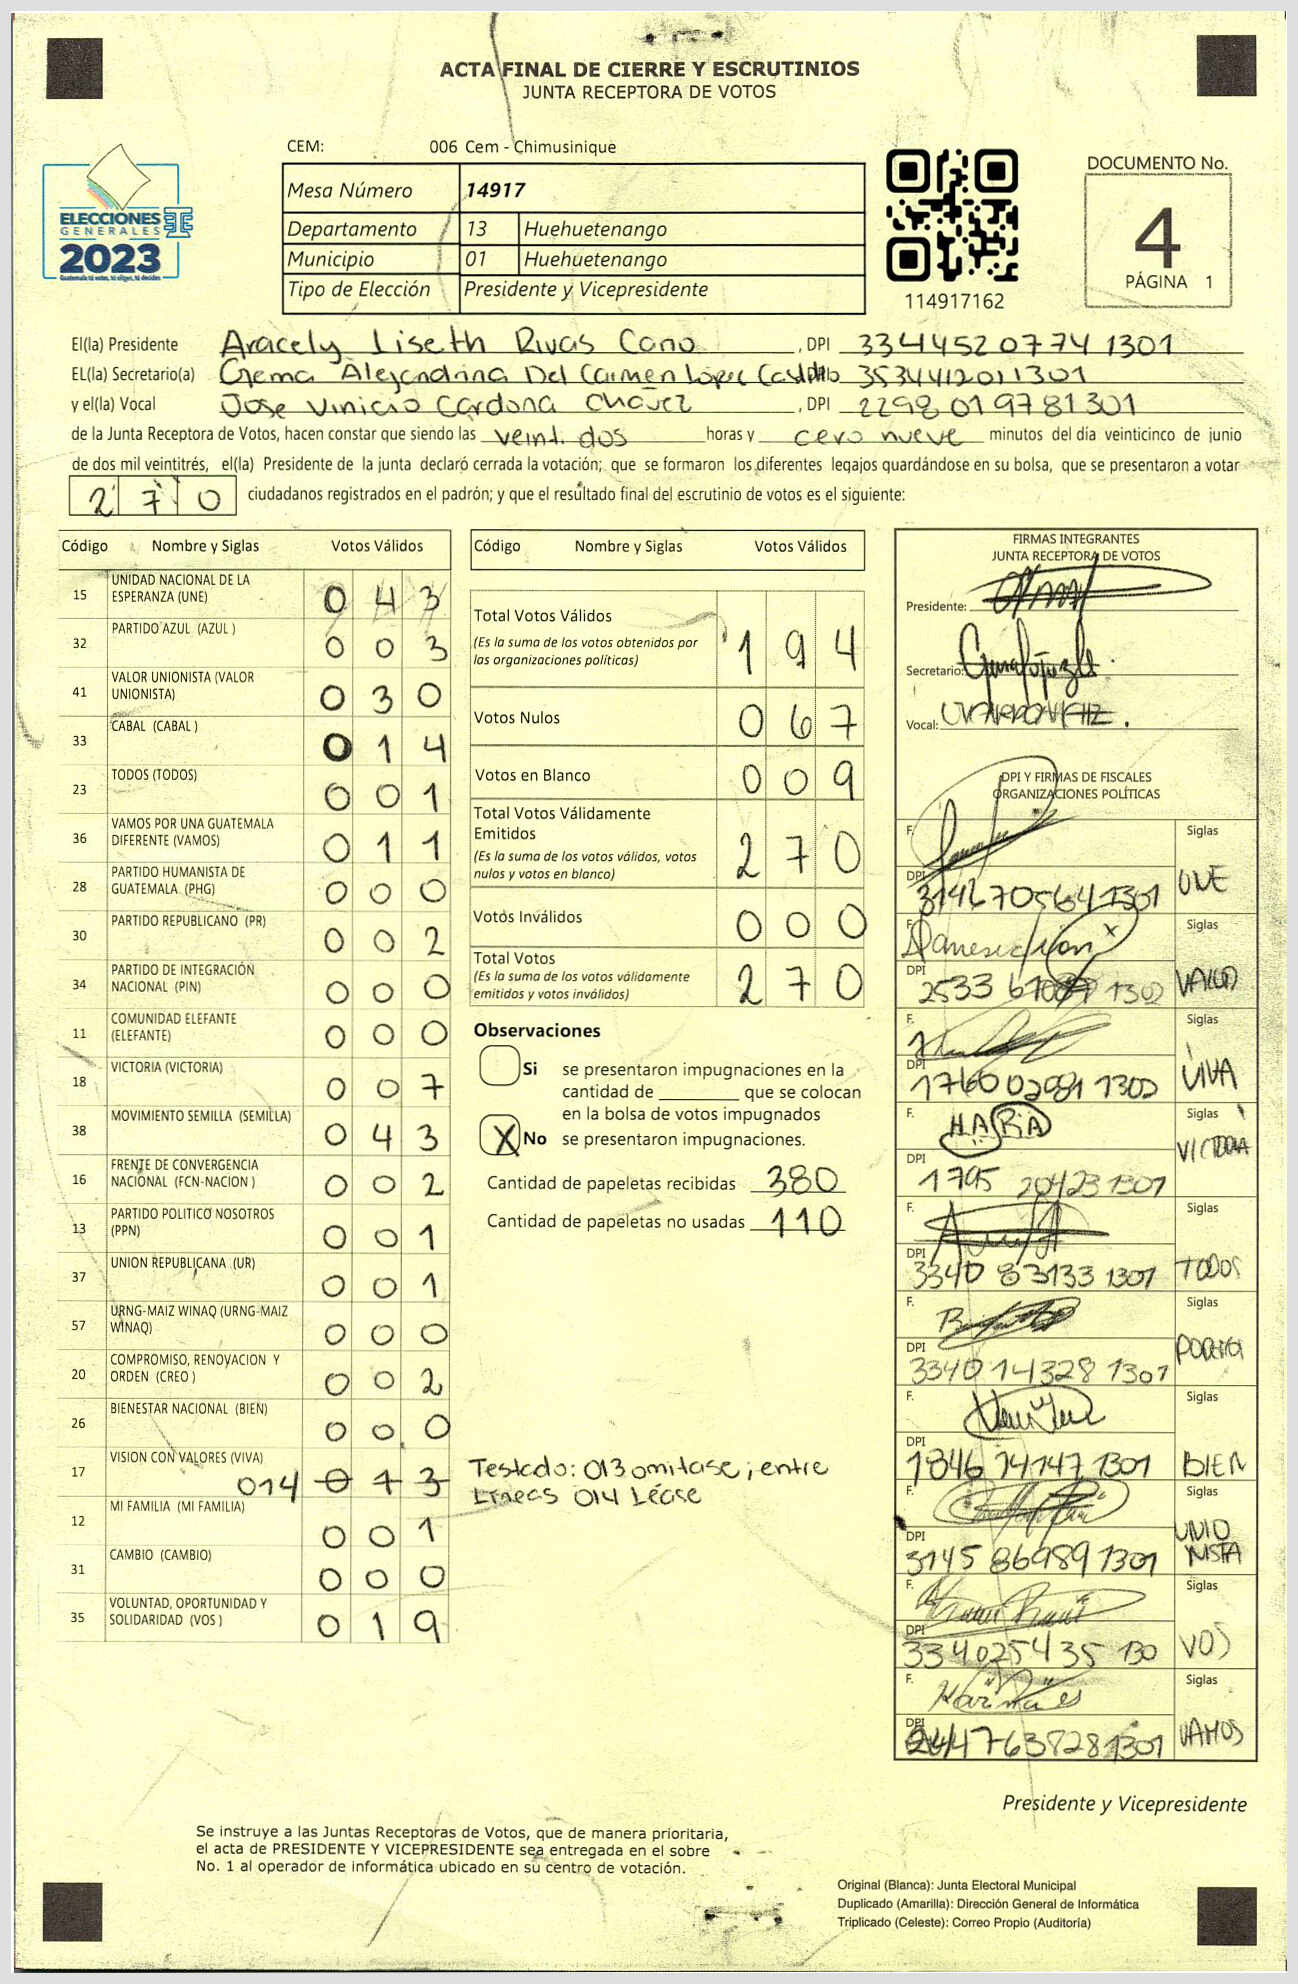 ACTA FINAL DE CIERRE Y ESCRUTINIOS
JUNTA RECEPTORA DE VOTOS
CEM: 006 Cem - Chimusinique
ELECCIONES
GENERALES
2023
Guatemala tú votas, tú eliges, tú decides
Mesa Número 14917
Departamento 13 Huehuetenango
Municipio 01 Huehuetenango
Tipo de Elección Presidente y Vicepresidente
114917162
DOCUMENTO No.
4
PÁGINA 1
El(la) Presidente Aracely Liseth Rivas Cano , DPI 3344520774 1301
EL(la) Secretario(a) Gema Alejandrina Del Carmen López Castillo 3534412011301
y el(la) Vocal Jose Vinicio Cardona Chávez , DPI 2298019781301
de la Junta Receptora de Votos, hacen constar que siendo las veintidos horas y cero nueve minutos del día veinticinco de junio
de dos mil veintitrés, el(la) Presidente de la junta declaró cerrada la votación; que se formaron los diferentes legajos guardándose en su bolsa, que se presentaron a votar
270 ciudadanos registrados en el padrón; y que el resultado final del escrutinio de votos es el siguiente:
Código Nombre y Siglas Votos Válidos
15 UNIDAD NACIONAL DE LA ESPERANZA (UNE) 043
32 PARTIDO AZUL (AZUL ) 003
41 VALOR UNIONISTA (VALOR UNIONISTA) 030
33 CABAL (CABAL ) 014
23 TODOS (TODOS) 001
36 VAMOS POR UNA GUATEMALA DIFERENTE (VAMOS) 011
28 PARTIDO HUMANISTA DE GUATEMALA (PHG) 000
30 PARTIDO REPUBLICANO (PR) 002
34 PARTIDO DE INTEGRACIÓN NACIONAL (PIN) 000
11 COMUNIDAD ELEFANTE (ELEFANTE) 000
18 VICTORIA (VICTORIA) 007
38 MOVIMIENTO SEMILLA (SEMILLA) 043
16 FRENTE DE CONVERGENCIA NACIONAL (FCN-NACION ) 002
13 PARTIDO POLITICO NOSOTROS (PPN) 001
37 UNION REPUBLICANA (UR) 001
57 URNG-MAIZ WINAQ (URNG-MAIZ WINAQ) 000
20 COMPROMISO, RENOVACION Y ORDEN (CREO ) 002
26 BIENESTAR NACIONAL (BIEN) 000
17 VISION CON VALORES (VIVA) 014 013
12 MI FAMILIA (MI FAMILIA) 001
31 CAMBIO (CAMBIO) 000
35 VOLUNTAD, OPORTUNIDAD Y SOLIDARIDAD (VOS ) 019
Código Nombre y Siglas Votos Válidos
Total Votos Válidos 194
(Es la suma de los votos obtenidos por
las organizaciones políticas)
Votos Nulos 067
Votos en Blanco 009
Total Votos Válidamente
Emitidos 270
(Es la suma de los votos válidos, votos
nulos y votos en blanco)
Votos Inválidos 000
Total Votos 270
(Es la suma de los votos válidamente
emitidos y votos inválidos)
Observaciones
Si se presentaron impugnaciones en la
cantidad de ________ que se colocan
en la bolsa de votos impugnados
X No se presentaron impugnaciones.
Cantidad de papeletas recibidas 380
Cantidad de papeletas no usadas 110
Testado: 013 omitase; entre
Líneas 014 Léase
FIRMAS INTEGRANTES
JUNTA RECEPTORA DE VOTOS
Presidente:
Secretario:
Vocal:
DPI Y FIRMAS DE FISCALES
ORGANIZACIONES POLÍTICAS
F. Siglas
DPI 3146705641301 UNE
F. Siglas
DPI 2533 1302 VALOR
F. Siglas
DPI 1302 VIVA
F. MARIA Siglas
DPI 1795 20423 1301 VICTORIA
F. Siglas
DPI 3340 83133 1301 TODOS
F. Siglas
DPI 3340 14328 1301
F. Siglas
DPI 1846 74147 1301 BIEN
F. Siglas
DPI 3145 86989 1301 UNIO
NISTA
F. Siglas
DPI 334025435 130 VOS
F. Siglas
DPI 4763828 1301 VAMOS
Presidente y Vicepresidente
Se instruye a las Juntas Receptoras de Votos, que de manera prioritaria,
el acta de PRESIDENTE Y VICEPRESIDENTE sea entregada en el sobre
No. 1 al operador de informática ubicado en su centro de votación.
Original (Blanca): Junta Electoral Municipal
Duplicado (Amarilla): Dirección General de Informática
Triplicado (Celeste): Correo Propio (Auditoría)